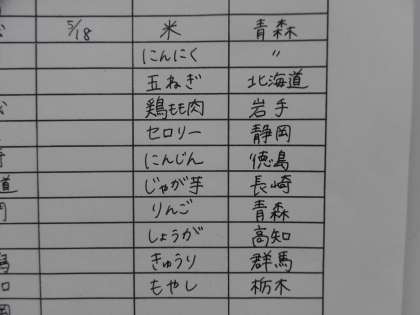 5/18 米 青森
にんにく 〃
玉ねぎ 北海道
鶏もも肉 岩手
セロリー 静岡
にんじん 徳島
道 じゃが芋 長崎
りんご 青森
しょうが 高知
きゅうり 群馬
もやし 栃木